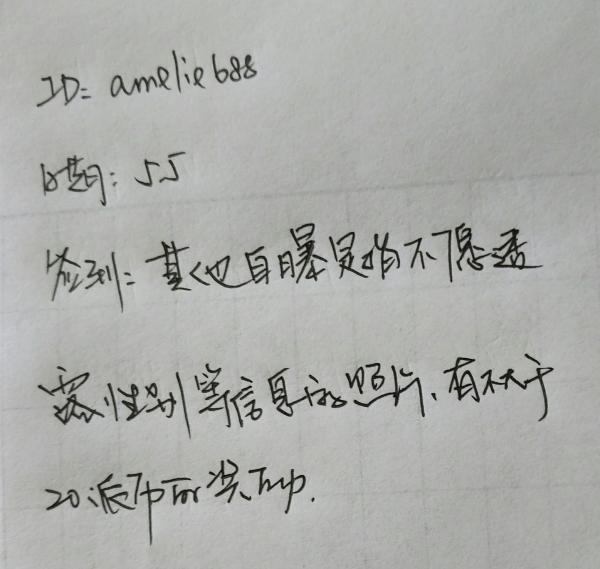 ID: amelie688
日期: 55
签到: 其他自曝是指不愿透
露性别等信息的照片、有不大于
20派币的奖励.